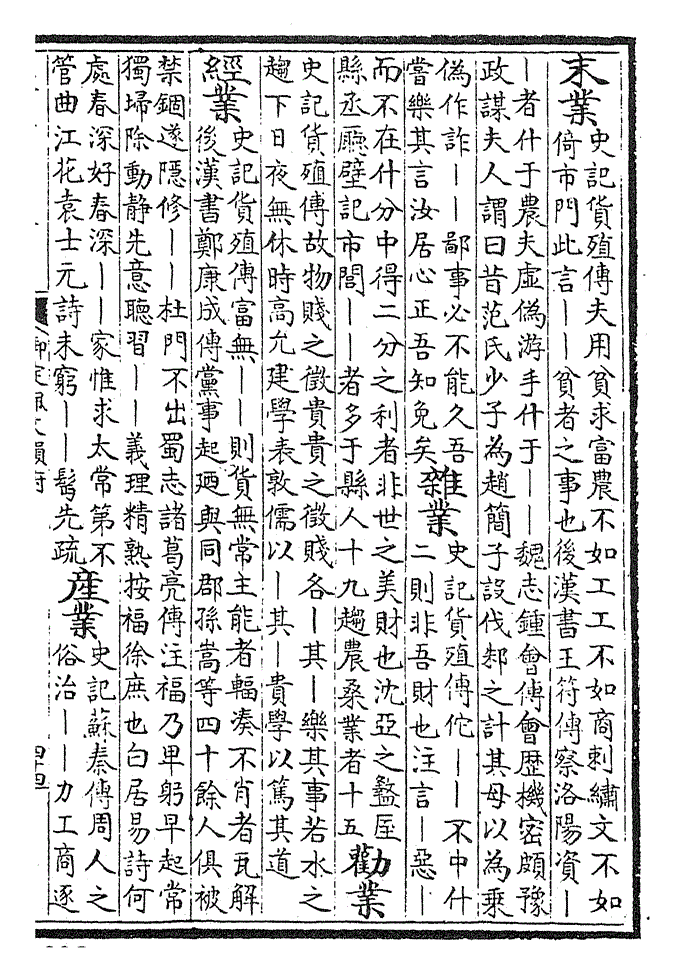 末業 史記貨殖傳夫用貧求富農不如工工不如商刺繡文不如
倚市門此言丨丨貧者之事也後漢書王符傳察洛陽資丨
丨者什于農夫虛偽游手什于丨丨魏志鍾會傳會歷機密頗豫
政謀夫人謂曰昔范氏少子為趙簡子設伐邾之計其母以為乗
偽作詐丨丨鄙事必不能久吾
嘗樂其言汝居心正吾知免矣
雜業 史記貨殖傳佗丨丨不中什
二則非吾財也注言丨惡丨
而不在什分中得二分之利者非世之美財也沈亞之盩厔
縣丞廳壁記市閭丨丨者多于縣人十九趨農桑業者十五
勸業
史記貨殖傳故物賤之徵貴貴之徵賤各丨其丨樂其事若水之
趨下日夜無休時高允建學表敦儒以丨其丨貴學以篤其道
經業 史記貨殖傳富無丨丨則貨無常主能者輻湊不肖者瓦解
後漢書鄭康成傳黨事起廼與同郡孫嵩等四十餘人俱被
禁錮遂隱修丨丨杜門不出蜀志諸葛亮傳注福乃卑躬早起常
獨埽除動静先意聽習丨丨義理精熟按福徐庶也白居易詩何
處春深好春深丨丨家惟求太常第不
管曲江花袁士元詩未窮丨丨髩先疏
產業 史記蘇秦傳周人之
俗治丨丨力工商逐